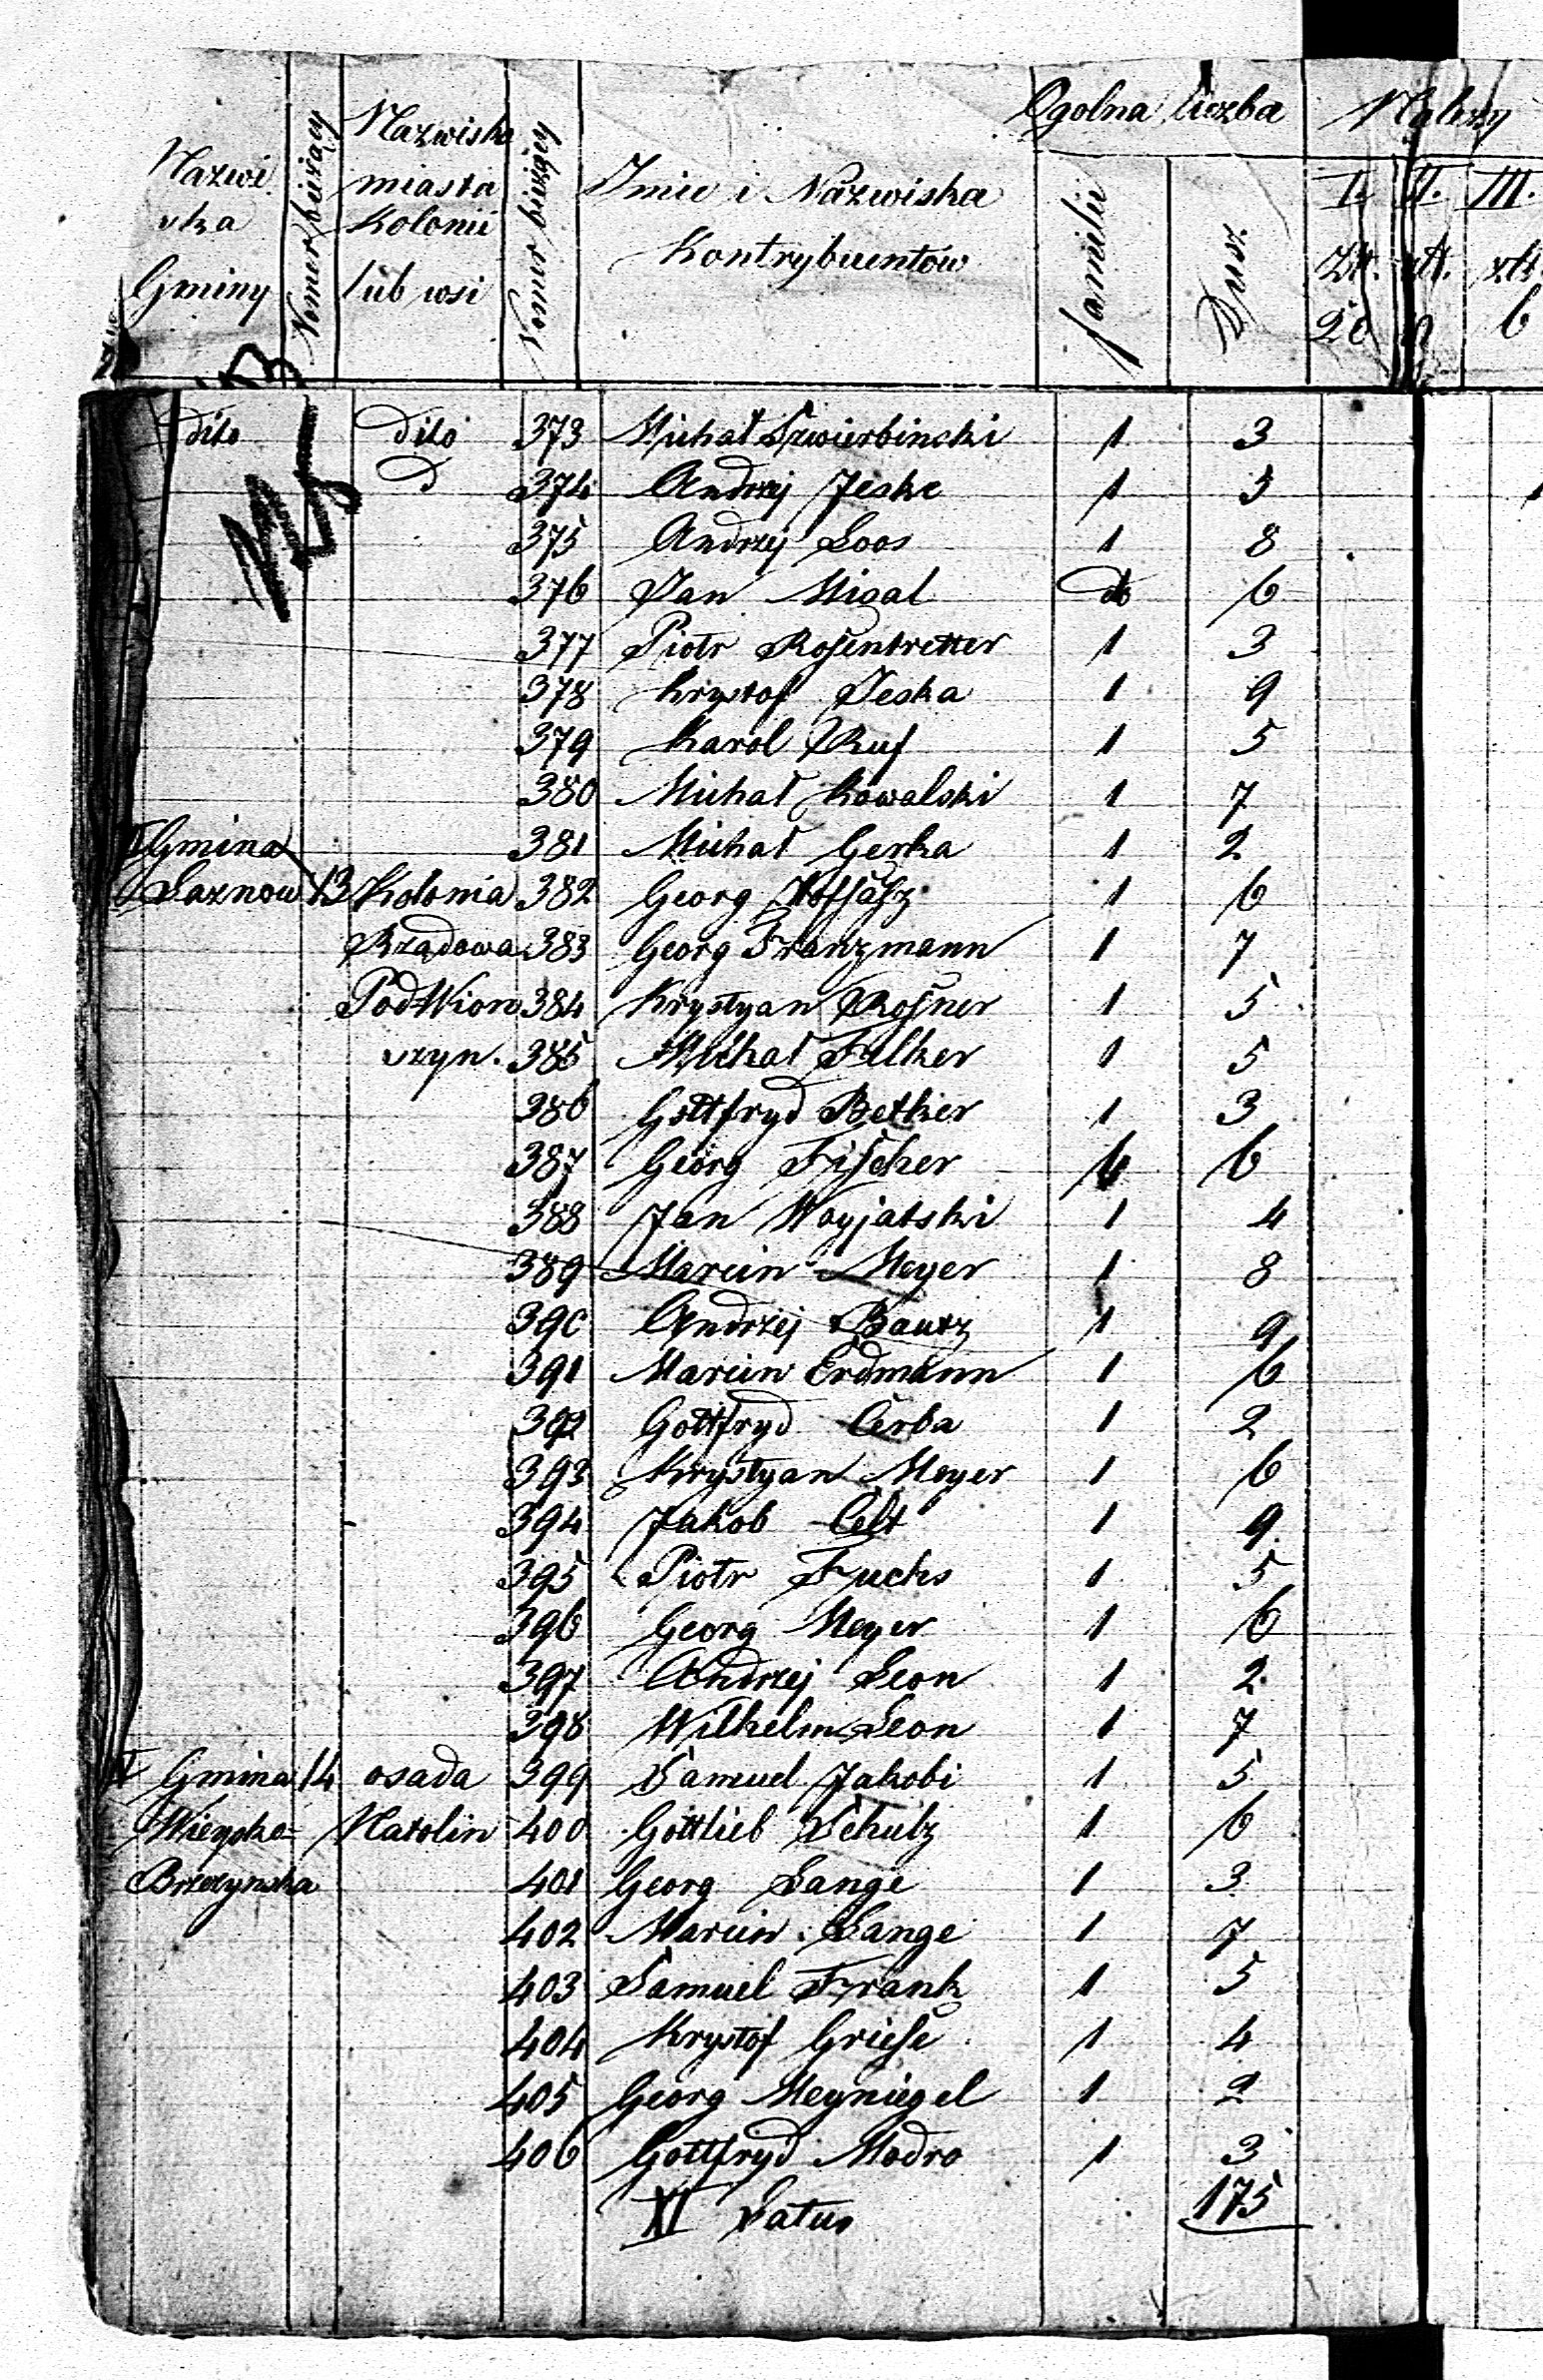 Nazwiska Gminy | Nomer bieżący | Nazwisko miasta Kolonii lub wsi | Nomer bieżący | Imie i Nazwiska Kontrybuentow | Ogolna liczba | familii | Dusz | I. Zlt. | II. zlt. | III. zlt. 6
dito dito 373 Michał Szwierbinski 1 3
D 374 Andrzej Jeske 1 3
375 Andrzej Loos 1 8
376 Jan Misal 6
377 Piotr Rosentretter 1 3
378 Krystof Jeska 1 9
379 Karol Ruf 1 5
380 Michał Kowalski 1 7
Gmina 381 Michał Gerka 1 2
Łaznow 13 Kolonia 382 Georg Hoffasz 1 6
Rządowa 383 Georg Franzmann 1 7
Pod Wion 384 Krystyan Rosner 1 5
szyn. 385 Michał Felker 1 5
386 Gottfryd Betker 1 3
387 Georg Fischer 6
388 Jan Woyjatski 1 4
389 Marcin Meyer 1 8
390 Andrzej Bautz 1 9
391 Marcin Erdmann 1 6
392 Gottfryd Cerba 1 2
393 Krystyan Meyer 1 6
394 Jakob Celt 1 9
395 Piotr Fuchs 1 5
396 Georg Meyer 1 6
397 Andrzej Leon 1 2
398 Wilhelm Leon 1 7
Gmina 14 osada 399 Samuel Jakobi 1 5
Wieyska Natolin 400 Gottlieb Schulz 1 6
Brzezynska 401 Georg Lange 1 3
402 Marcin Lange 1 7
403 Samuel Frank 1 5
404 Krystof Griese 1 4
405 Georg Meyniegel 1 2
406 Gottfryd Modro 1 3
XI Latus 175